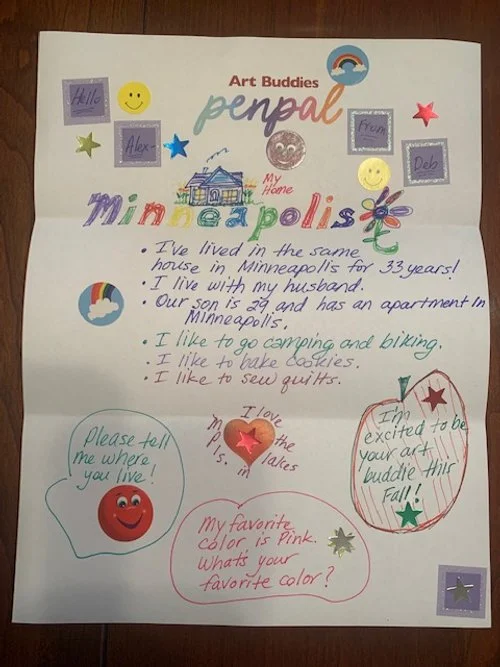 Art Buddies
penpal
Hello
Alex-
From
Deb
My
Home
Minneapolis
• I've lived in the same
house in Minneapolis for 33 years!
• I live with my husband.
• Our son is 29 and has an apartment in
Minneapolis.
• I like to go camping and biking.
• I like to bake cookies.
• I like to sew quilts.
Please tell
me where
you live!
I love
the
lakes
in
Mpls.
I'm
excited to be
your art
buddie this
Fall!
My favorite
color is Pink.
What's your
favorite color?